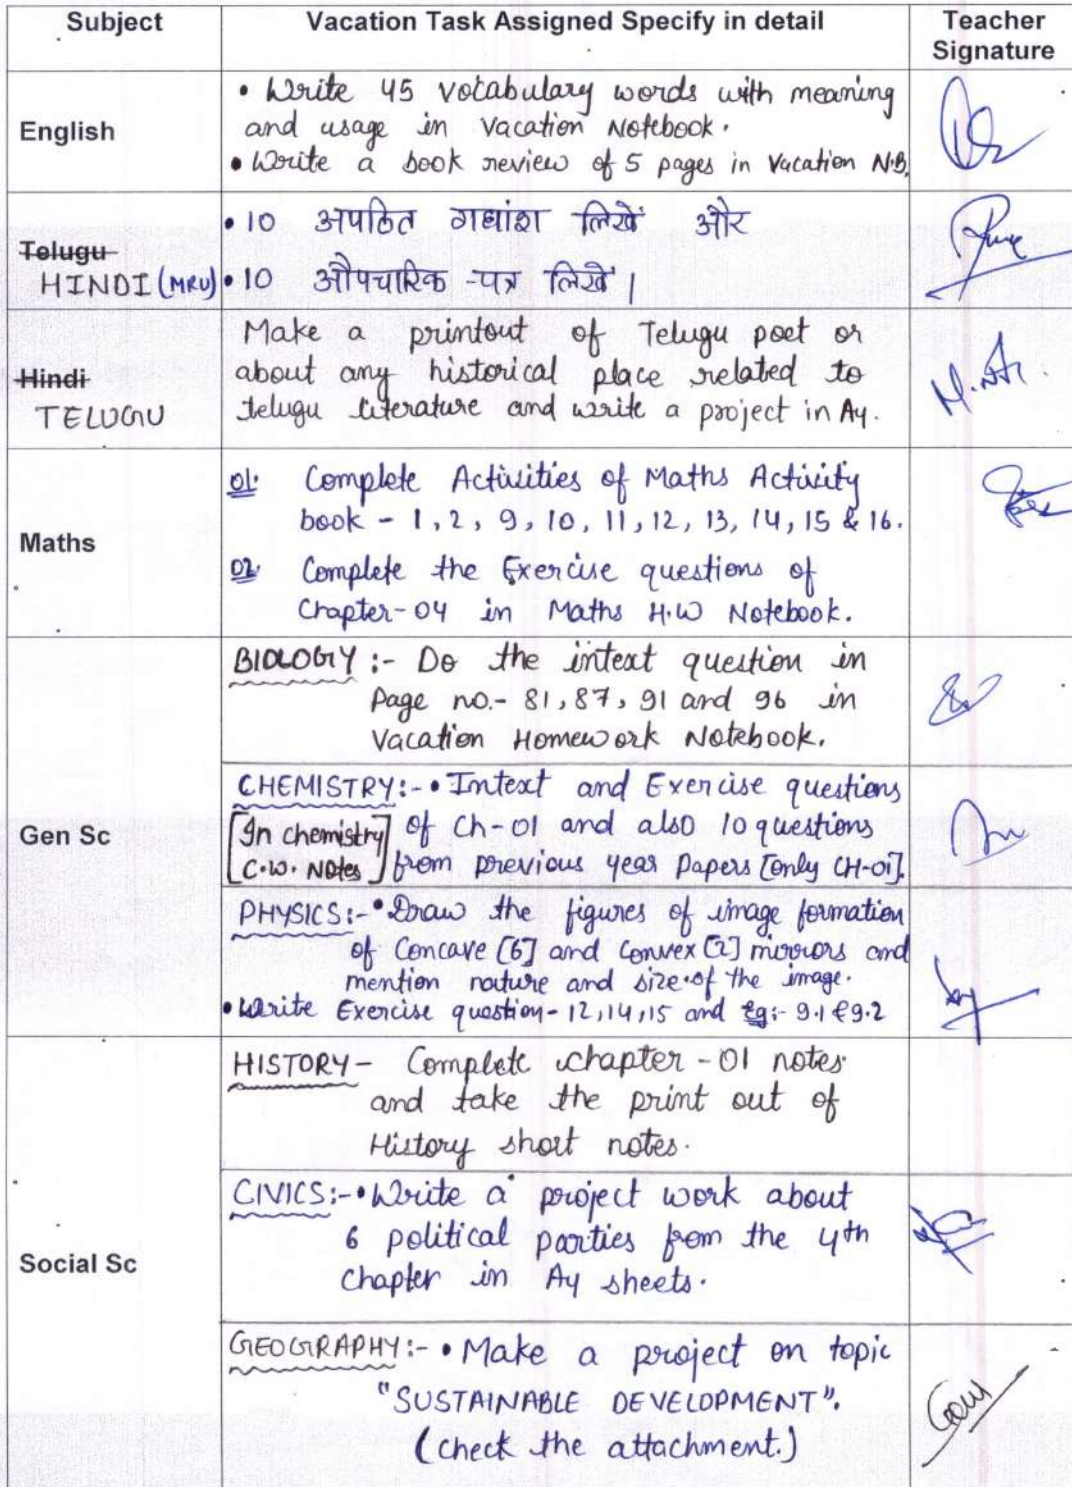 Subject
Vacation Task Assigned Specify in detail
Teacher
Signature
English
• Write 45 vocabulary words with meaning
and usage in Vacation Notebook.
• Write a book review of 5 pages in Vacation N.B.
Telugu
HINDI (MRU)
• 10 अपठित गद्यांश लिखें और
• 10 औपचारिक -पत्र लिखें |
Hindi
TELUGU
Make a printout of Telugu poet or
about any historical place related to
telugu literature and write a project in A4.
Maths
01. Complete Activities of Maths Activity
book - 1, 2, 9, 10, 11, 12, 13, 14, 15 & 16.
02. Complete the Exercise questions of
Chapter-04 in Maths H.W Notebook.
Gen Sc
BIOLOGY :- Do the intext question in
Page no.- 81, 87, 91 and 96 in
Vacation Homework Notebook.
CHEMISTRY:- • Intext and Exercise questions
[In chemistry C.W. Notes] of Ch-01 and also 10 questions
from previous year Papers [only CH-01].
PHYSICS:- • Draw the figures of image formation
of Concave [6] and Convex [2] mirrors and
mention nature and size of the image.
• Write Exercise question- 12, 14, 15 and Eg:- 9.1 & 9.2
Social Sc
HISTORY - Complete chapter -01 notes
and take the print out of
History short notes.
CIVICS:- • Write a project work about
6 political parties from the 4th
Chapter in A4 sheets.
GEOGRAPHY:- • Make a project on topic
"SUSTAINABLE DEVELOPMENT".
(check the attachment.)